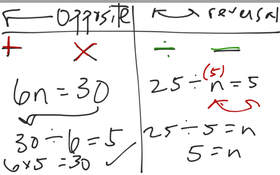 ← Opposite
+ ×
6n = 30
30 ÷ 6 = 5
6 × 5 = 30 ✓
↔ reversal
÷ −
(5)
25 ÷ n = 5
25 ÷ 5 = n
5 = n